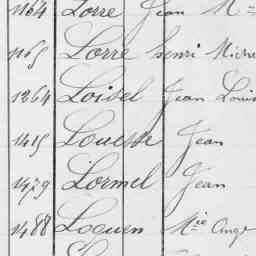 1164 Lorre Jean M
1165 Lorre henri Miche
1264 Loisel Jean Louis
1415 Louesse Jean
1479 Lormel Jean
1488 Loeuen Mie Ange